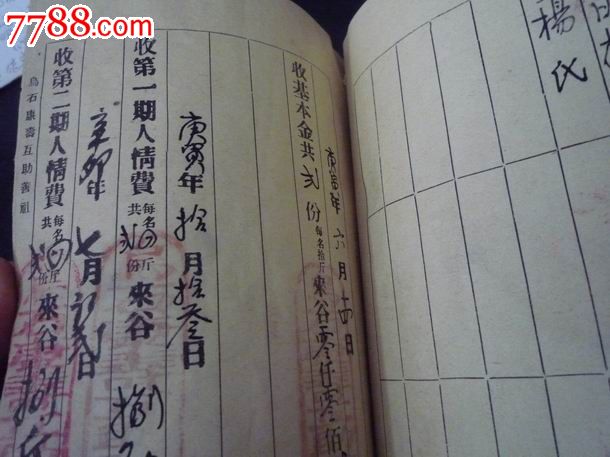 7788.com
楊氏
庚寅年六月十四日
收基本金共弍份每名拾斤來谷零仟零佰
庚寅年拾月拾叁日
收第一期人情費每名四斤共弍份來谷捌
辛卯年七月初弍日
收第二期人情費每名四斤共弍份來谷捌斤
烏石康壽互助善祖